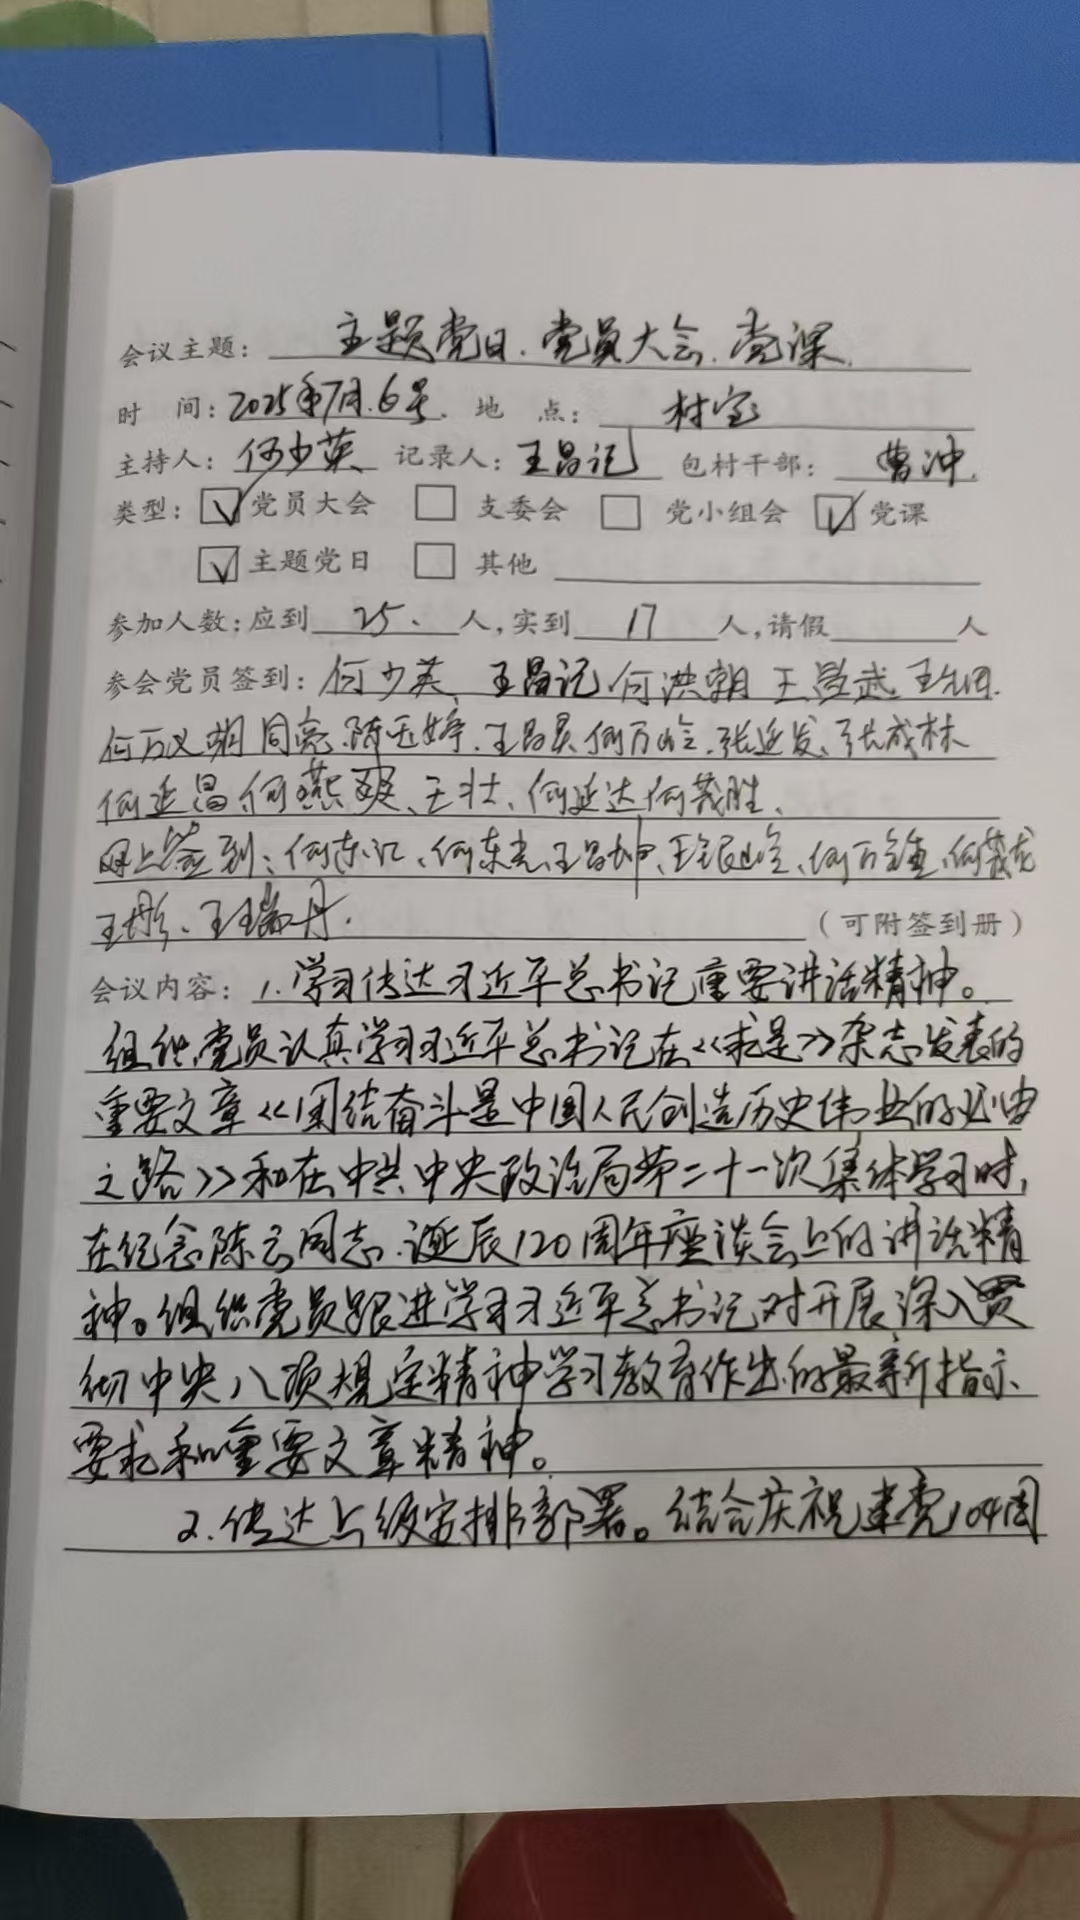 会议主题: 主题党日、党员大会、党课
时 间: 2025年7月6号 地 点: 村室
主持人: 何少英 记录人: 王昌记 包村干部: 曹冲
类型: ☑ 党员大会 ☐ 支委会 ☐ 党小组会 ☑ 党课
☑ 主题党日 ☐ 其他
参加人数: 应到 25 人, 实到 17 人, 请假 人
参会党员签到: 何少英、王昌记 何洪朝 王昌武
陈玉婷、王昌灵 张延发、张成林
何延昌 何燕爽、王壮、何延达 何茂胜、
网上签到: 何东汇、何东亮 王昌坤、王银岭、何茂龙
王彤、王瑞丹. (可附签到册)
会议内容: 1.学习传达习近平总书记重要讲话精神。
组织党员认真学习习近平总书记在《求是》杂志发表的
重要文章《团结奋斗是中国人民创造历史伟业的必由
之路》和在中共中央政治局第二十一次集体学习时,
在纪念陈云同志诞辰120周年座谈会上的讲话精
神。组织党员跟进学习习近平总书记对开展深入贯
彻中央八项规定精神学习教育作出的最新指示、
要求和重要文章精神。
2.传达上级安排部署。结合庆祝建党104周